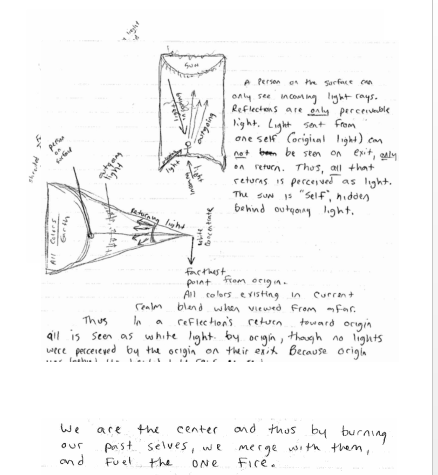 light
Sun
A person on the surface can
only see incoming light rays.
Reflections are only perceivable
light. Light sent from
one self (original light) can
not be seen on exit, only
on return. Thus, all that
returns is perceived as light.
The sun is "self", hidden
behind outgoing light.
outgoing
light
person
on
surface
outgoing
light
All Colors
Earth
Returning light
white
concentrate
farthest
point from origin.
All colors existing in current
realm blend when viewed from afar.
Thus in a reflection's return toward origin
all is seen as white light by origin, though no lights
were perceieved by the origin on their exit. Because origin
We are the center and thus by burning
our past selves, we merge with them,
and fuel the one fire.